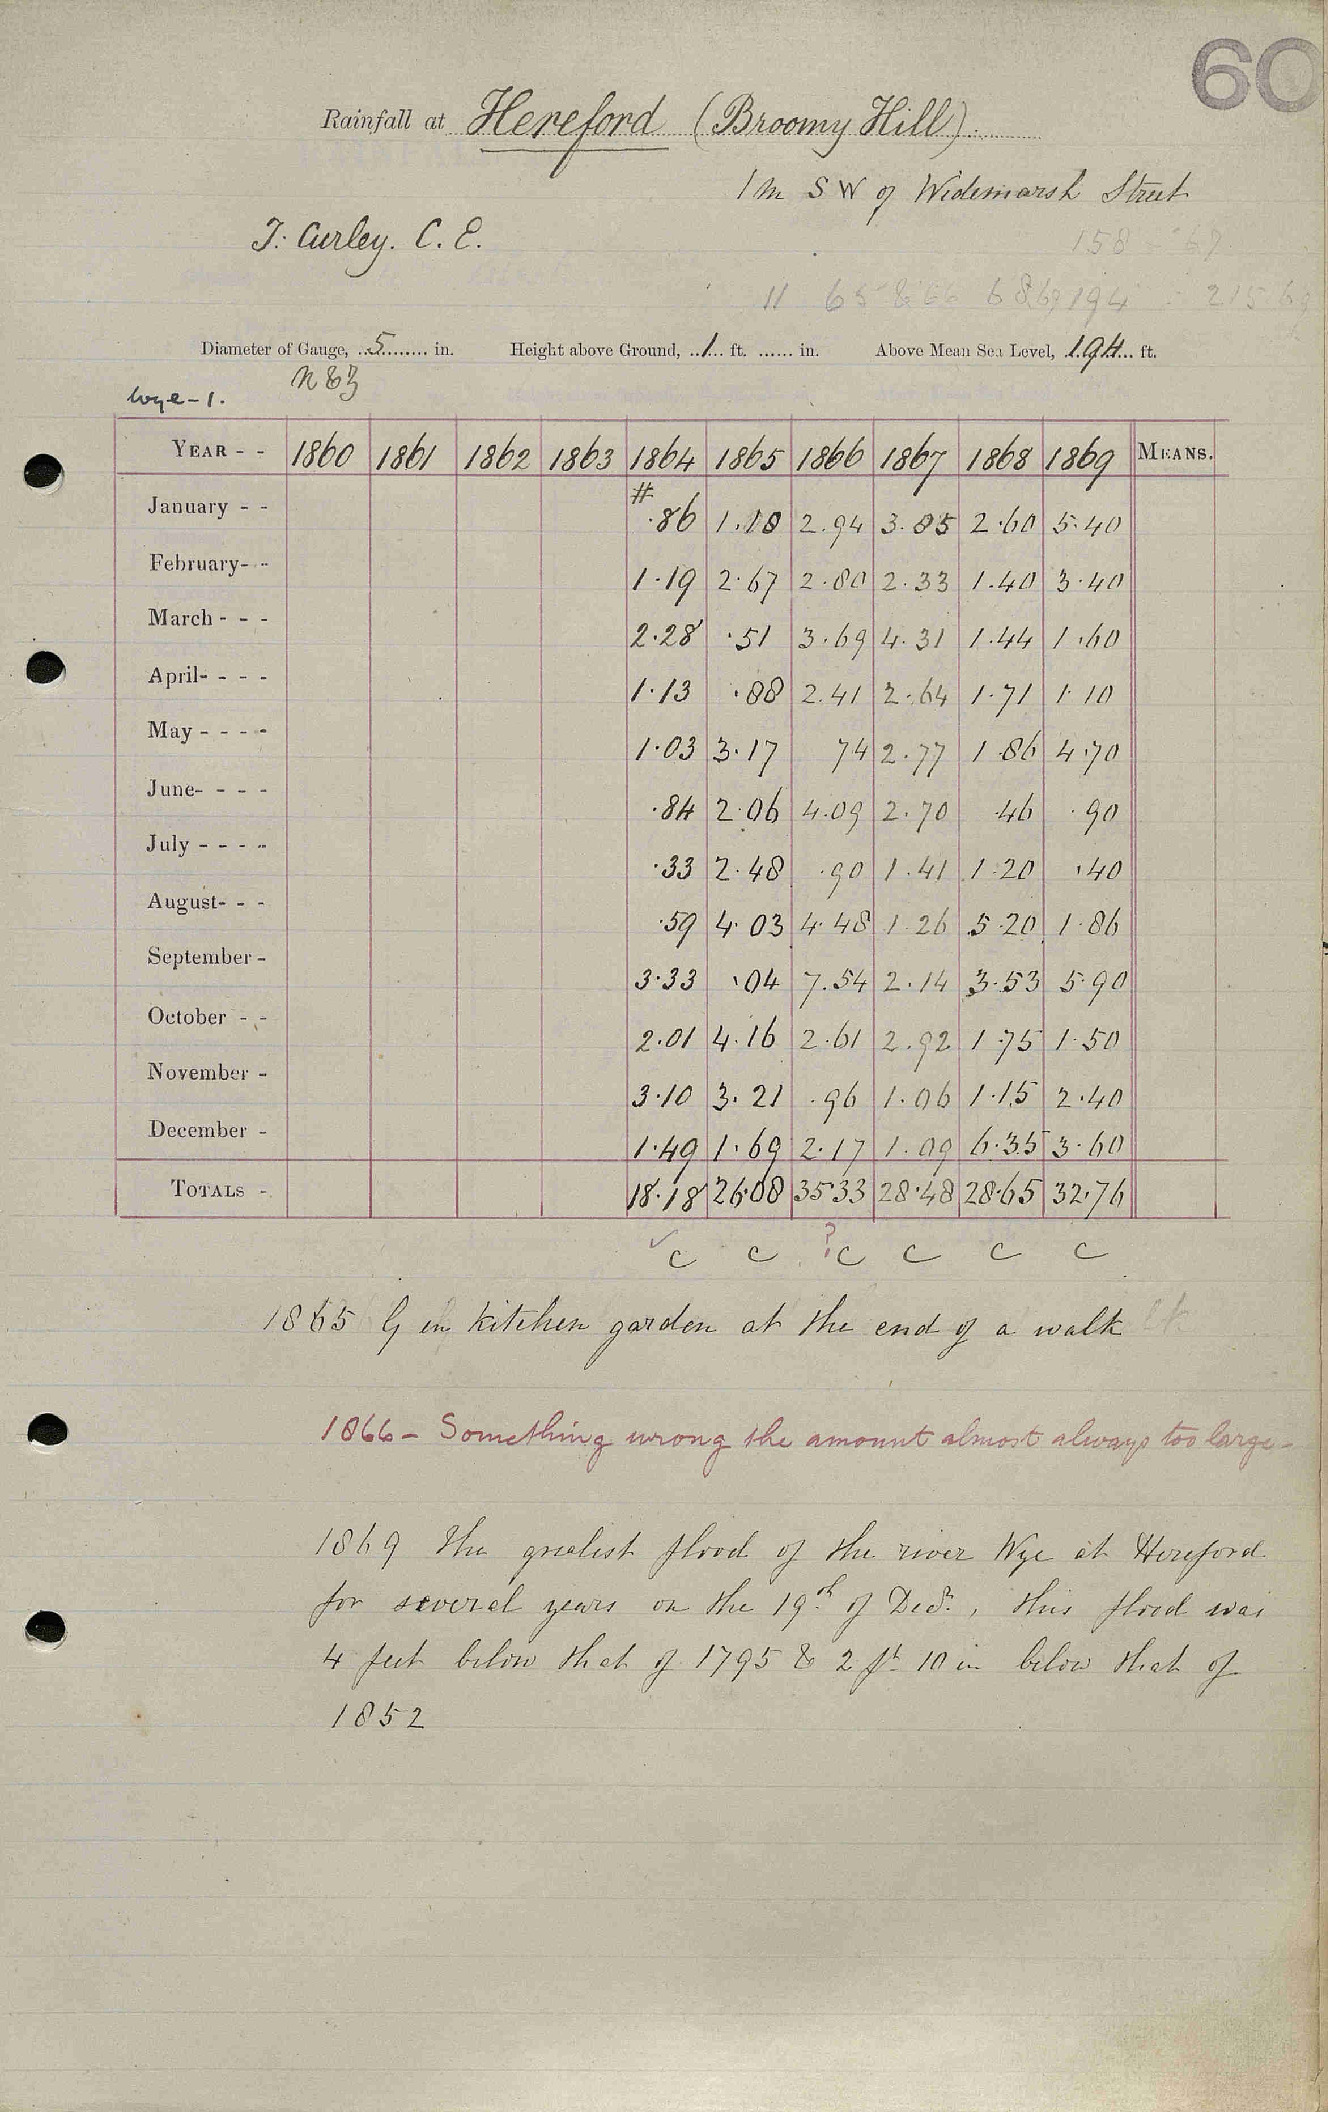 60
Rainfall at Hereford (Broomy Hill).
1 m SW of Widemarsh Street
J. Curley. C. E.
158 - 67
11 65 & 66 68,69 194 = 215
Diameter of Gauge, 5 in. Height above Ground, 1 ft. in. Above Mean Sea Level, 194 ft.
Wye-1.
YEAR - - 1860 1861 1862 1863 1864 1865 1866 1867 1868 1869 MEANS.
January - - # .86 1.18 2.94 3.85 2.60 5.40
February- - 1.19 2.67 2.80 2.33 1.40 3.40
March - - - 2.28 .51 3.69 4.31 1.44 1.60
April- - - - 1.13 .88 2.41 2.64 1.71 1.10
May - - - - 1.03 3.17 74 2.77 1.86 4.70
June- - - - .84 2.06 4.09 2.70 46 .90
July - - - - .33 2.48 .90 1.41 1.20 .40
August- - - .59 4.03 4.48 1.26 5.20 1.86
September - 3.33 .04 7.54 2.14 3.53 5.90
October - - 2.01 4.16 2.61 2.92 1.75 1.50
November - 3.10 3.21 .96 1.06 1.15 2.40
December - 1.49 1.69 2.17 1.09 6.35 3.60
TOTALS - 18.18 26.08 35.33 28.48 28.65 32.76
✓ c c ? c c c c
1865 G in kitchen garden at the end of a walk
1866 - Something wrong the amount almost always too large -
1869 The greatest flood of the river Wye at Hereford
for several years on the 19th of Decr., this flood was
4 feet below that of 1795 & 2 ft 10 in below that of
1852